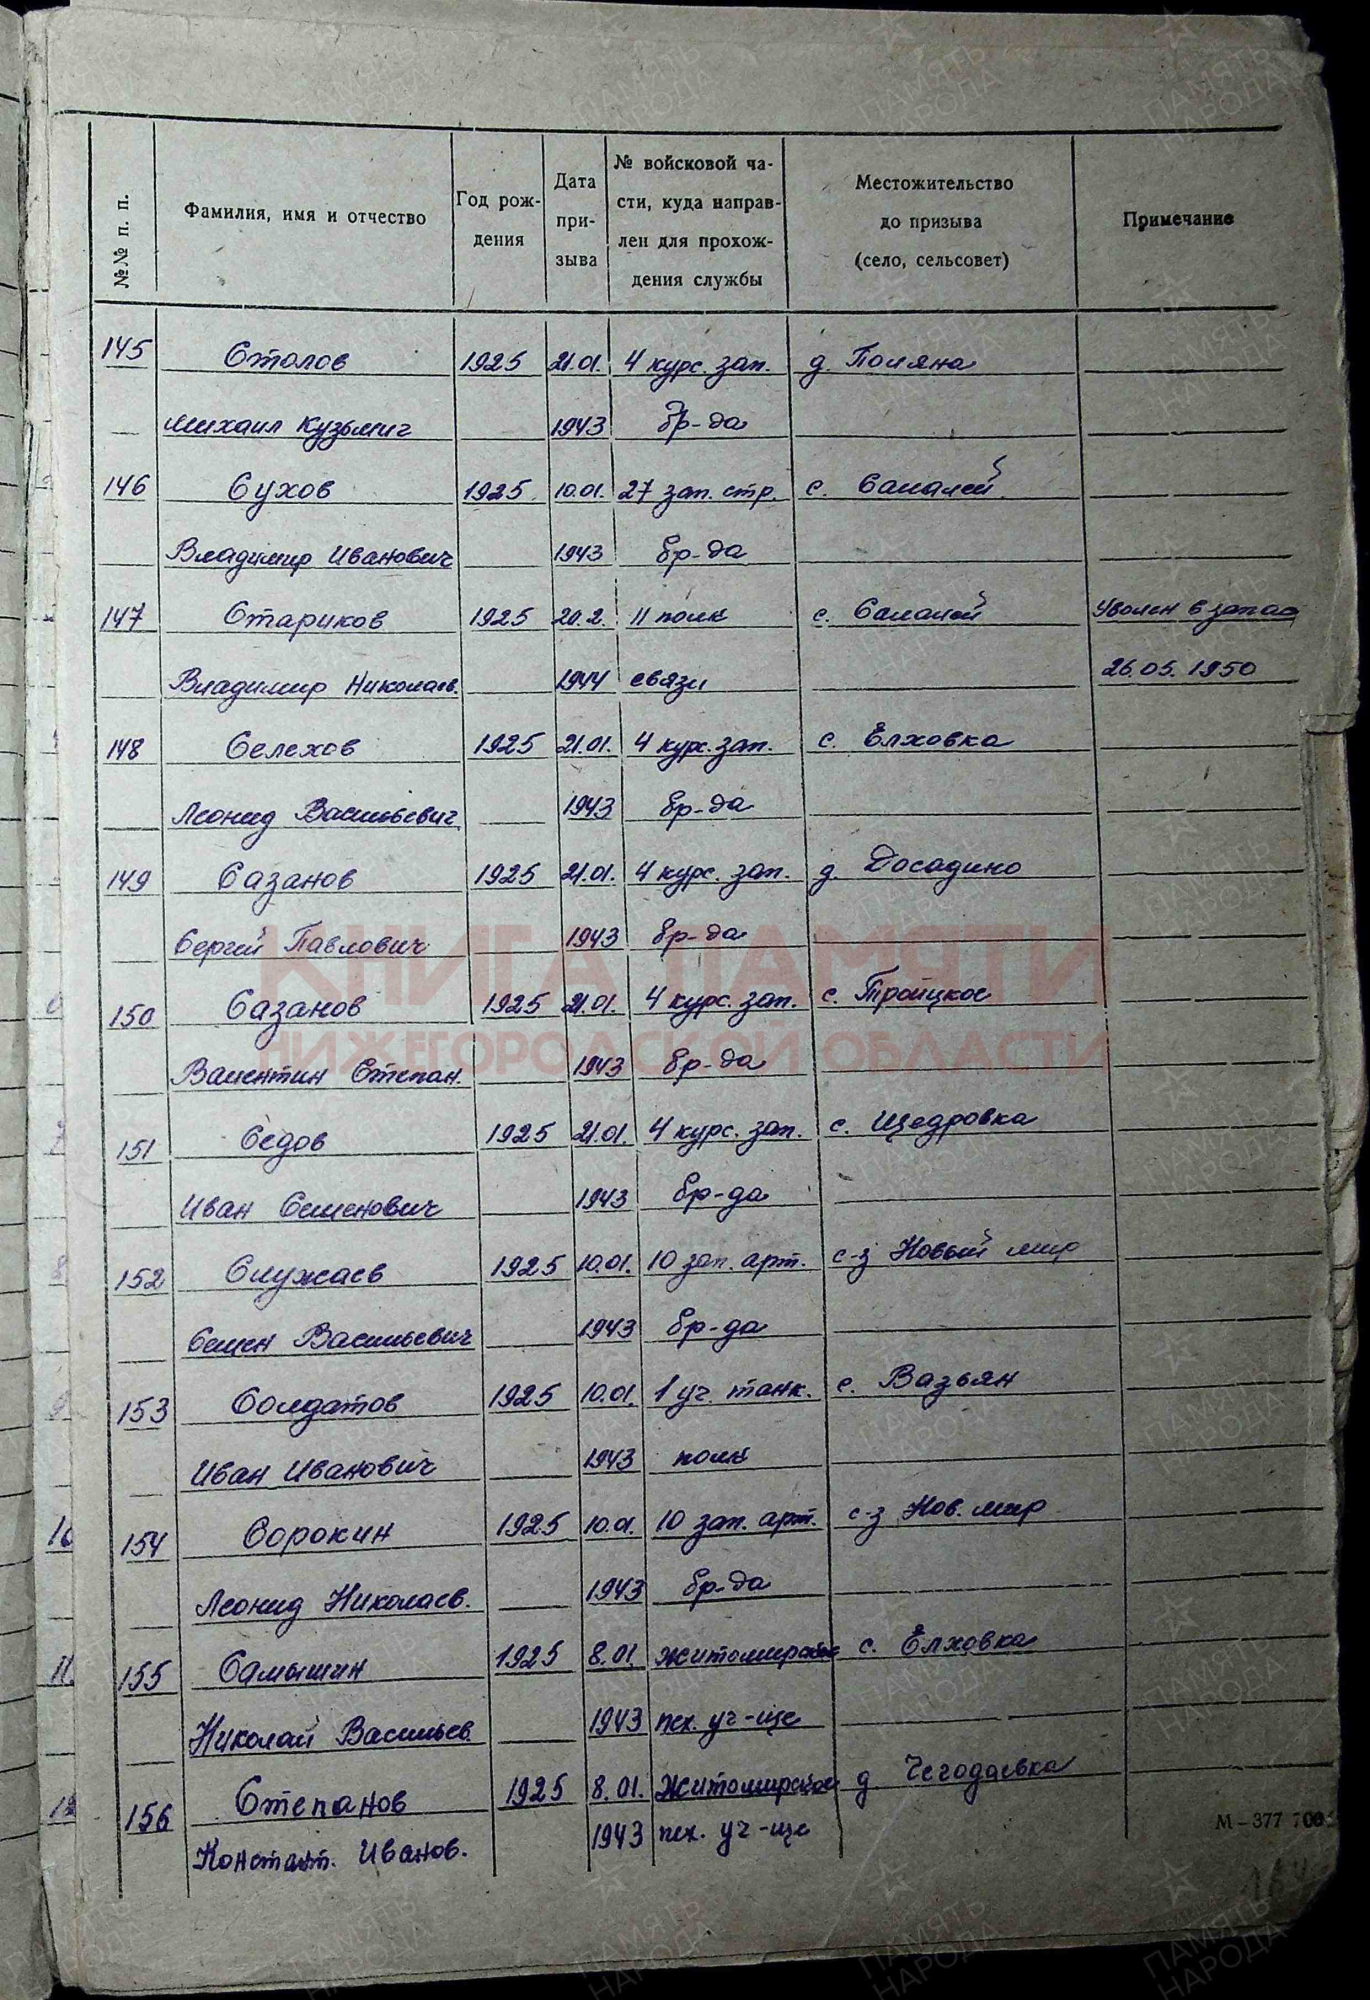 №№ п. п.
Фамилия, имя и отчество
Год рож-
дения
Дата
при-
зыва
№ войсковой ча-
сти, куда направ-
лен для прохож-
дения службы
Местожительство
до призыва
(село, сельсовет)
Примечание
145 Столов 1925 21.01. 4 курс. зап. д. Поляна
Михаил Кузьмич 1943 бр-да
146 Сухов 1925 10.01. 27 зап. стр. с. Салалей
Владимир Иванович 1943 бр-да
147 Стариков 1925 20.2. 11 полк с. Салалей Уволен в запас
Владимир Николаев. 1944 связи 26.05.1950
148 Селехов 1925 21.01. 4 курс. зап. с. Елховка
Леонид Васильевич 1943 бр-да
149 Сазанов 1925 21.01. 4 курс. зап. д. Досадино
Сергей Павлович 1943 бр-да
150 Сазанов 1925 21.01. 4 курс. зап. с. Тройцкое
Валентин Степан. 1943 бр-да
151 Седов 1925 21.01. 4 курс. зап. с. Щедровка
Иван Семенович 1943 бр-да
152 Служаев 1925 10.01. 10 зап. арт. с-з Новый мир
Семен Васильевич 1943 бр-да
153 Солдатов 1925 10.01. 1 уч. танк. с. Вазьян
Иван Иванович 1943 полк
154 Сорокин 1925 10.01. 10 зап. арт. с-з Нов. мир
Леонид Николаев. 1943 бр-да
155 Самышин 1925 8.01. Житомирское с. Елховка
Николай Васильев. 1943 пех. уч-ще
156 Степанов 1925 8.01. Житомирское д. Чегодаевка
Констант. Иванов. 1943 пех. уч-ще
М—377 700
КНИГА ПАМЯТИ
НИЖЕГОРОДСКОЙ ОБЛАСТИ
ПАМЯТЬ
НАРОДА